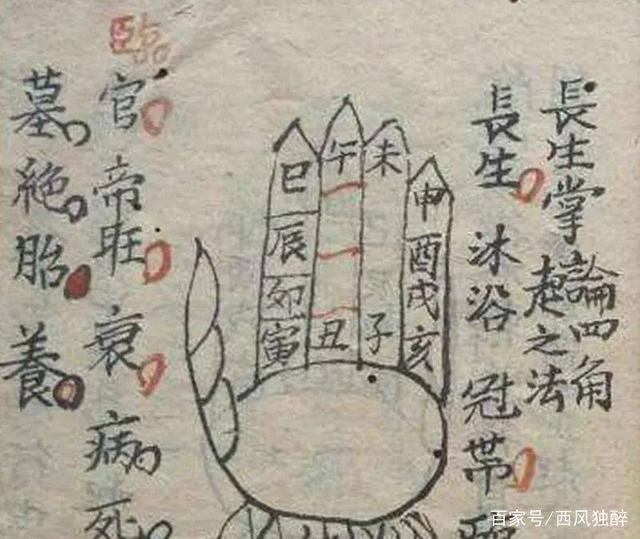 長生掌論四角
起之法
長生 沐浴 冠帶
申酉戌亥
未子
午丑
巳辰卯寅
臨官 帝旺 衰 病 死
墓 絕 胎 養
百家号/西风独醉